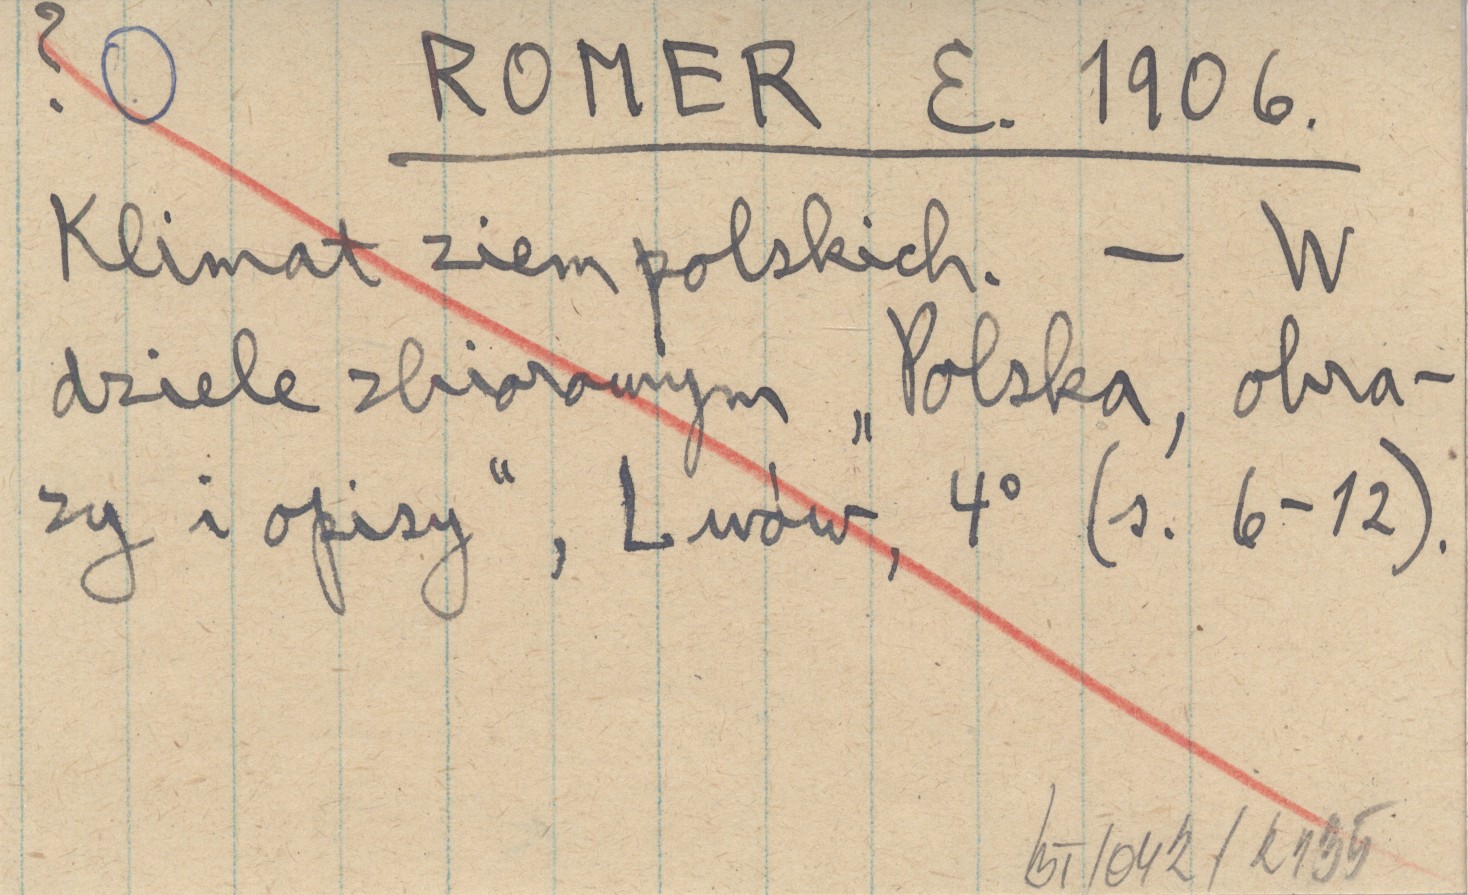 ? O ROMER E. 1906.
Klimat ziem polskich. — W
dziele zbiorowym „Polska, obra-
zy i opisy“, Lwów, 4° (s. 6-12).
/042/